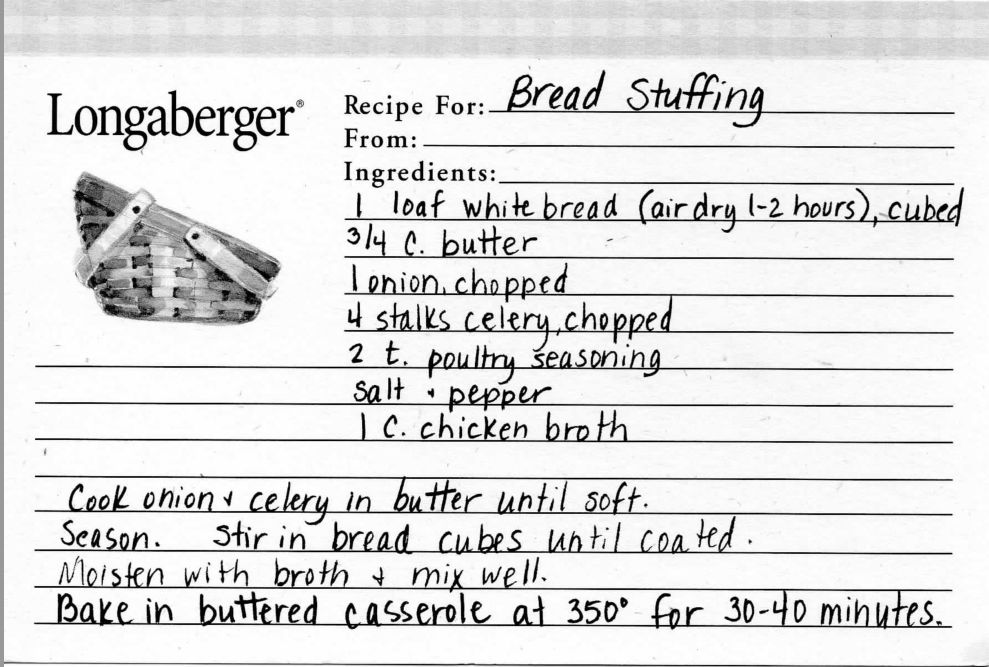 Longaberger®
Recipe For: Bread Stuffing
From:
Ingredients:
1 loaf white bread (air dry 1-2 hours), cubed
3/4 C. butter
1 onion, chopped
4 stalks celery, chopped
2 t. poultry seasoning
salt + pepper
1 C. chicken broth
Cook onion + celery in butter until soft.
Season. Stir in bread cubes until coated.
Moisten with broth + mix well.
Bake in buttered casserole at 350° for 30-40 minutes.